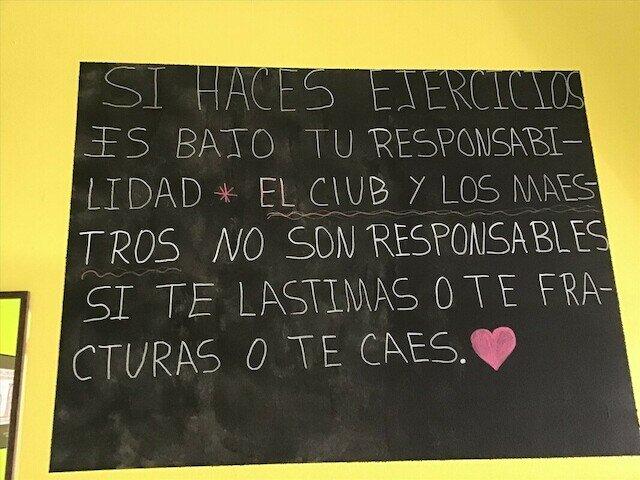 SI HACES EJERCICIOS
ES BAJO TU RESPONSABI-
LIDAD * EL CLUB Y LOS MAES-
TROS NO SON RESPONSABLES
SI TE LASTIMAS O TE FRA-
CTURAS O TE CAES.